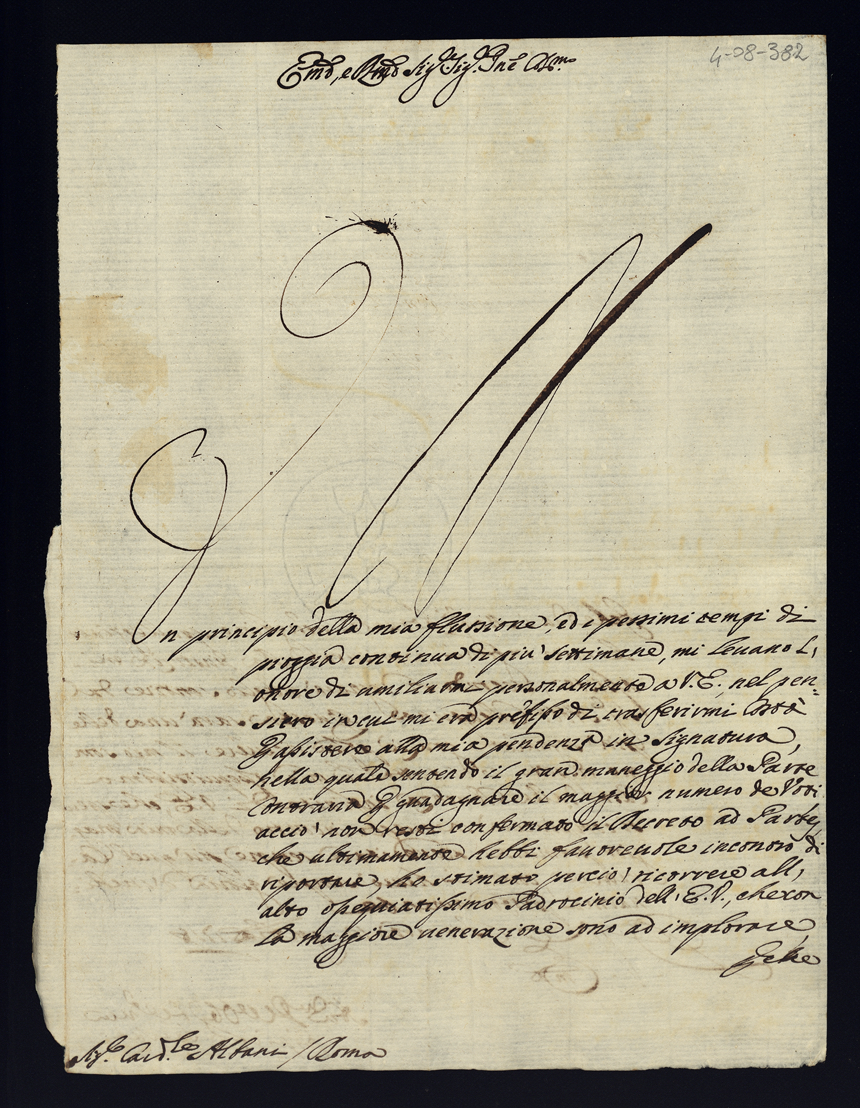 4-08-382
Em̃o, e Rm̃o Sig.r Sig.r Pne Col.mo
Un principio della mia flussione, ed i pessimi tempi di
pioggia continua di più settimane, mi levano l'
onore di umiliarmi personalmente a V.E., nel pen=
siero in cui mi ero prefisso di trasferirmi Costà
p assistere alla mia pendenza in Signatura,
nella quale sentendo il gran maneggio della Parte
Contraria p guadagnare il maggior numero de Voti
acciò non resti confermato il Decreto ad Partes,
che ultimamente hebbi favorevole incontro di
riportare ho stimato perciò ricorrere all'
alto ossequiatissimo Padrocinio dell'E.V., che con
la maggiore venerazione sono ad implorare,
Sig.r Card.le Albani / Roma